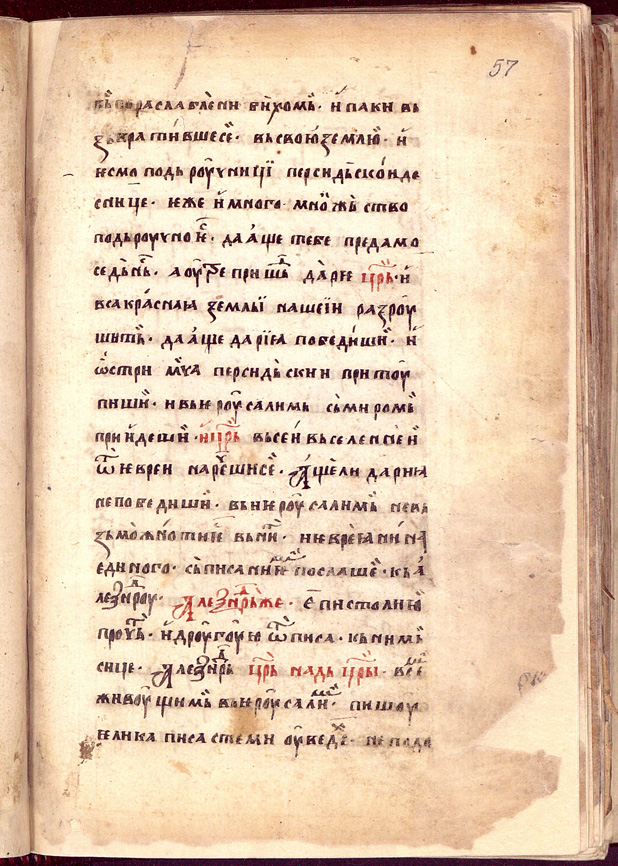 57
раслаблѣни бихомь · и паки вь
звратившесе · вь свою землю · и
есмо подь роуѵници персидьскои де
снице · еже и много мнѡжьство
подь роуѵною · да аще тебе предамо
се дьнⷭ҇ь · а оутре пришⷣь дарие црь · и
вса краснаа землы нашеи разроу
шить · да аще дариа победиши · и
ѡстри мѵа персидьскии притоу
пиши · и вь ероусалимь сь миромь
приидеши · и црь вьсеи вьселеннеи
ѿ евреи нарѣшисе · Аще ли дариа
не победиши · вь иероусалимь невь
зможно ти ѥⷭ вьнити · ни евреанина
единого · сьписание послаше · кь а
леѯⷣнроу · Алеѯⷣнрьже · епистолию
проѵⷮь · и дроугоую ѿписа · кь нимь
сице · Алеѯⷣнрь црь надь цры · все
живоущимь вь ероусалиⷨ · пишоу
велика писа стеми оуведеⷯ · не подо